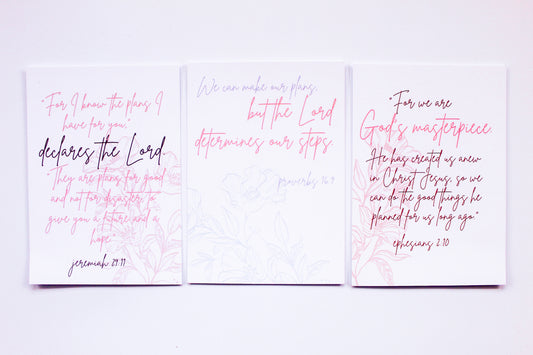 "For I know the plans I
have for you,"
declares the Lord.
"They are plans for good
and not for disaster, to
give you a future and a
hope."
jeremiah 29:11
We can make our plans,
but the Lord
determines our steps.
proverbs 16:9
"For we are
God's masterpiece.
He has created us anew
in Christ Jesus, so we
can do the good things he
planned for us long ago."
ephesians 2:10